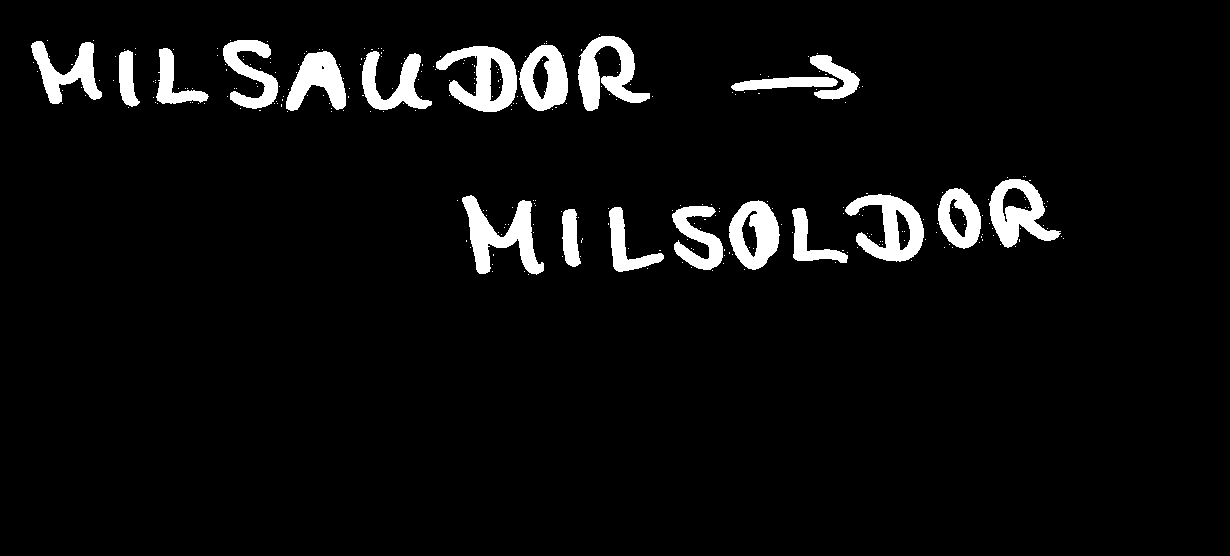 MILSAUDOR →
MILSOLDOR